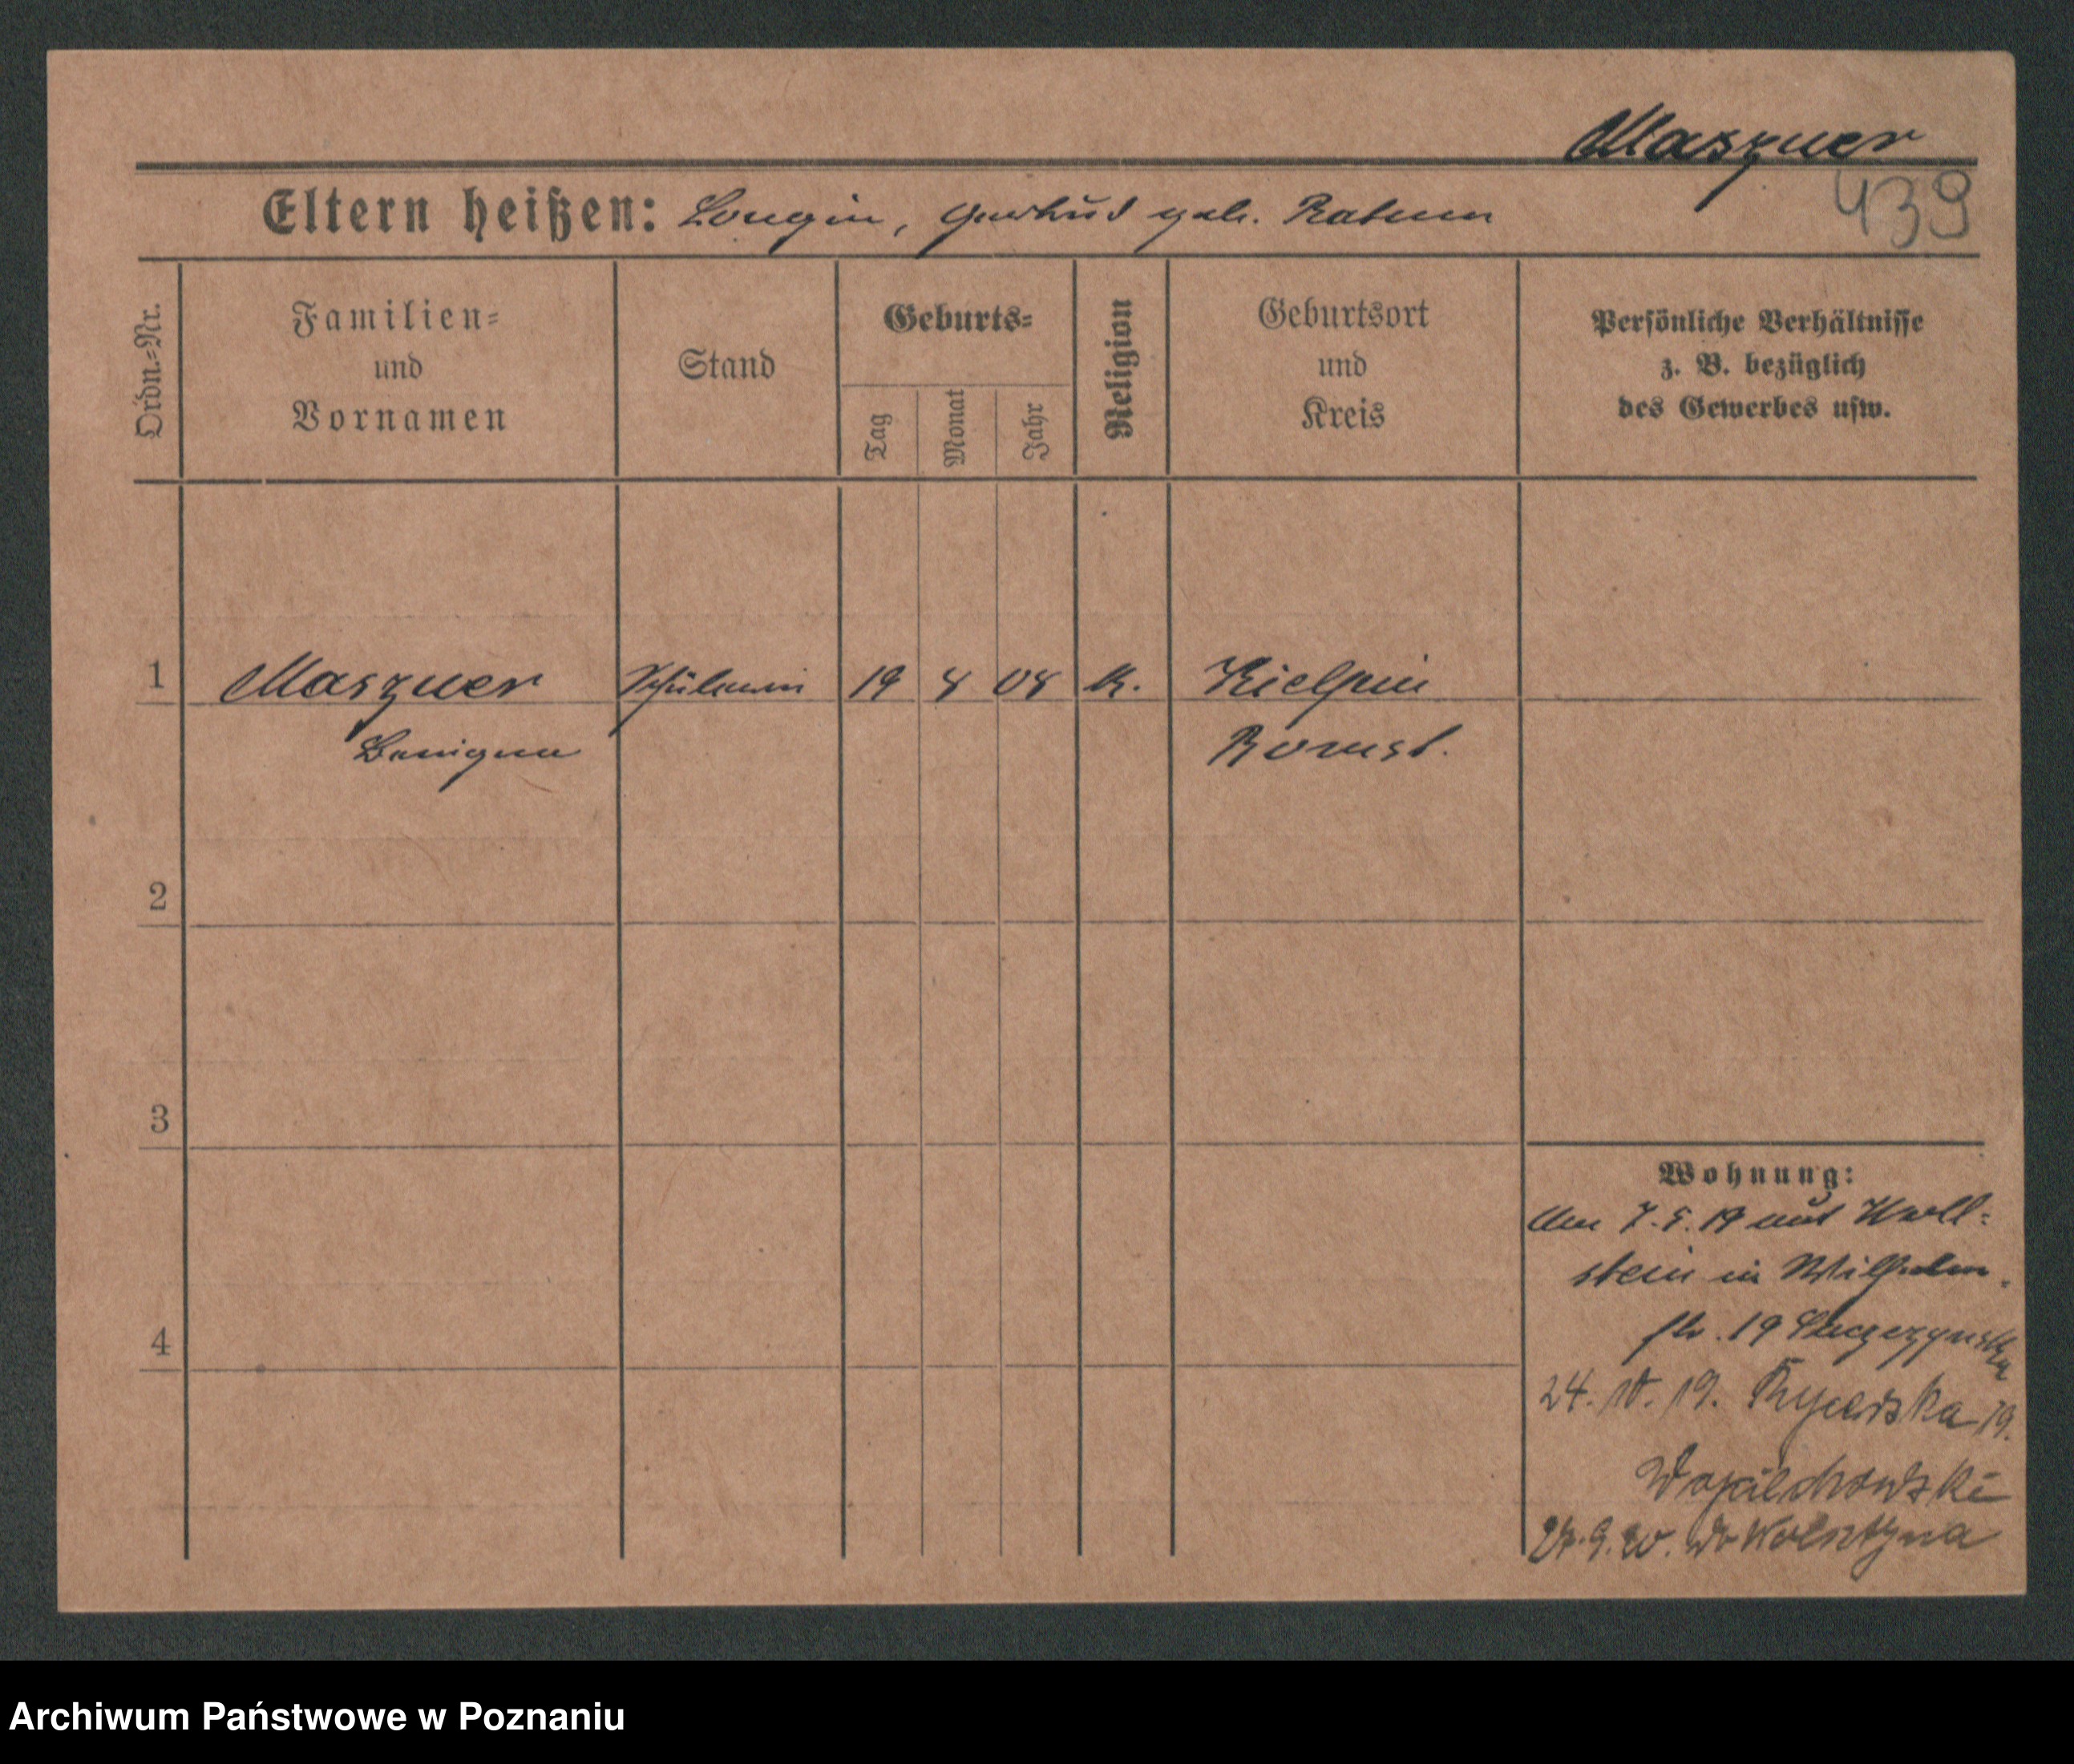 Maszner
439
Eltern heißen: Longin, Gertrud geb. Ratum
Ordn.-Nr.
Familien- und Vornamen
Stand
Geburts-
Tag
Monat
Jahr
Religion
Geburtsort und Kreis
Persönliche Verhältnisse
z. B. bezüglich
des Gewerbes usw.
1 Maszner Schülerin 19 8 08 K. Kielpin
Benigna Bomst.
2
3
4
Wohnung:
Am 7.5.19 aus Woll-
stein in Wilhelm-
str. 19
24. 10. 19. Rycerska 19.
20. Do Wolsztyna
Archiwum Państwowe w Poznaniu